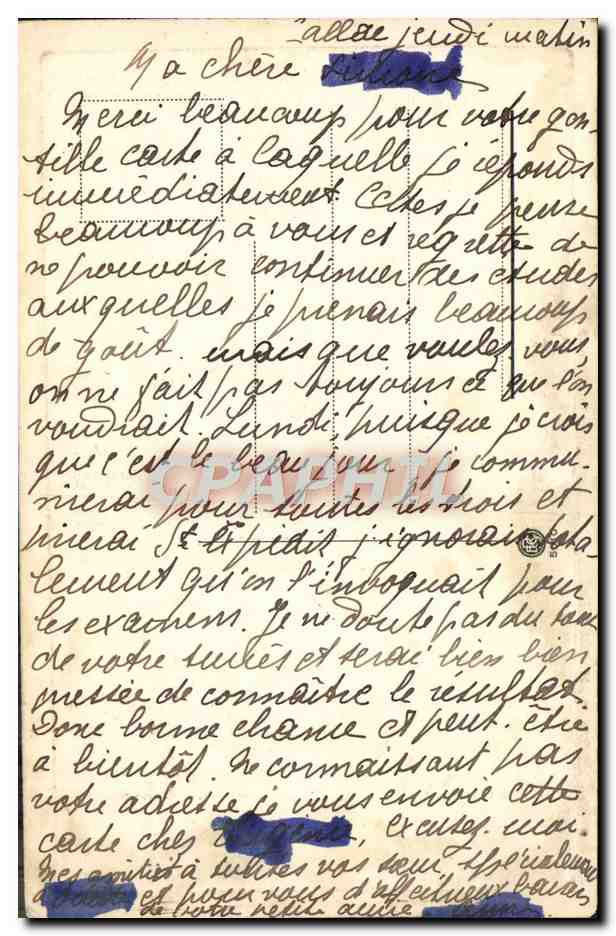 jeudi matin
Ma chère
Merci beaucoup pour votre gen-
tille carte à laquelle je réponds
immédiatement. Certes je pense
beaucoup à vous et regrette de
ne pouvoir continuer des études
auxquelles je prenais beaucoup
de goût. mais que voulez-vous,
on ne fait pas toujours ce que l'on
voudrait. Lundi, puisque je crois
que c'est le beau jour je commu-
nierai pour toutes les trois et
prierai St Expédit j'ignorais tota-
lement qu'on l'invoquait pour
les examens. Je ne doute pas du tout
de votre succès et serai bien bien
pressée de connaître le résultat.
Donc bonne chance et peut-être
à bientôt. Ne connaissant pas
votre adresse je vous envoie cette
carte chez excusez-moi
Mes amitiés à toutes vos sœurs spécialement
à et pour vous d'affectueux baisers
de votre petite amie
CPARAMA